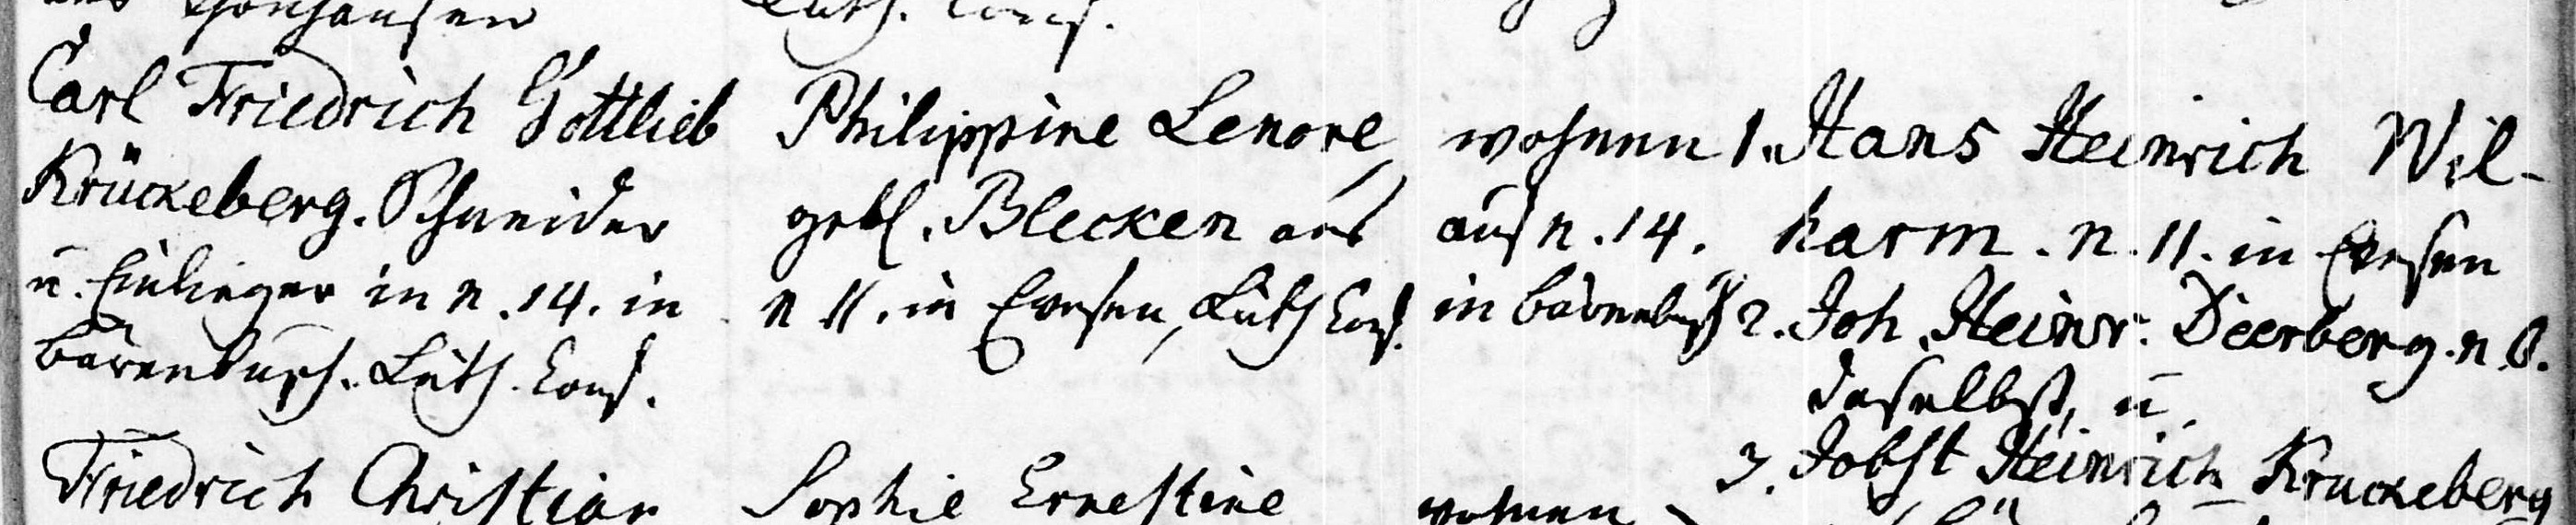 Luth. Conf.
Carl Friedrich Gottlieb
Krückeberg. Schneider
u. Einlieger in n. 14. in
Bärenbusch. Luth. Conf.
Philippine Lenore,
gebl. Blecken aus
n 11. in Evesen, Luth Conf.
wohnen
auf n. 14.
in Bärenbusch
1. Hans Heinrich Wil-
karm. n. 11. in Evesen
2. Joh. Heinr. Deerberg. n 8.
daselbst, u.
3. Jobst Heinrich Kruckeberg
Friedrich Christian
Sophie Ernestine
wohnen